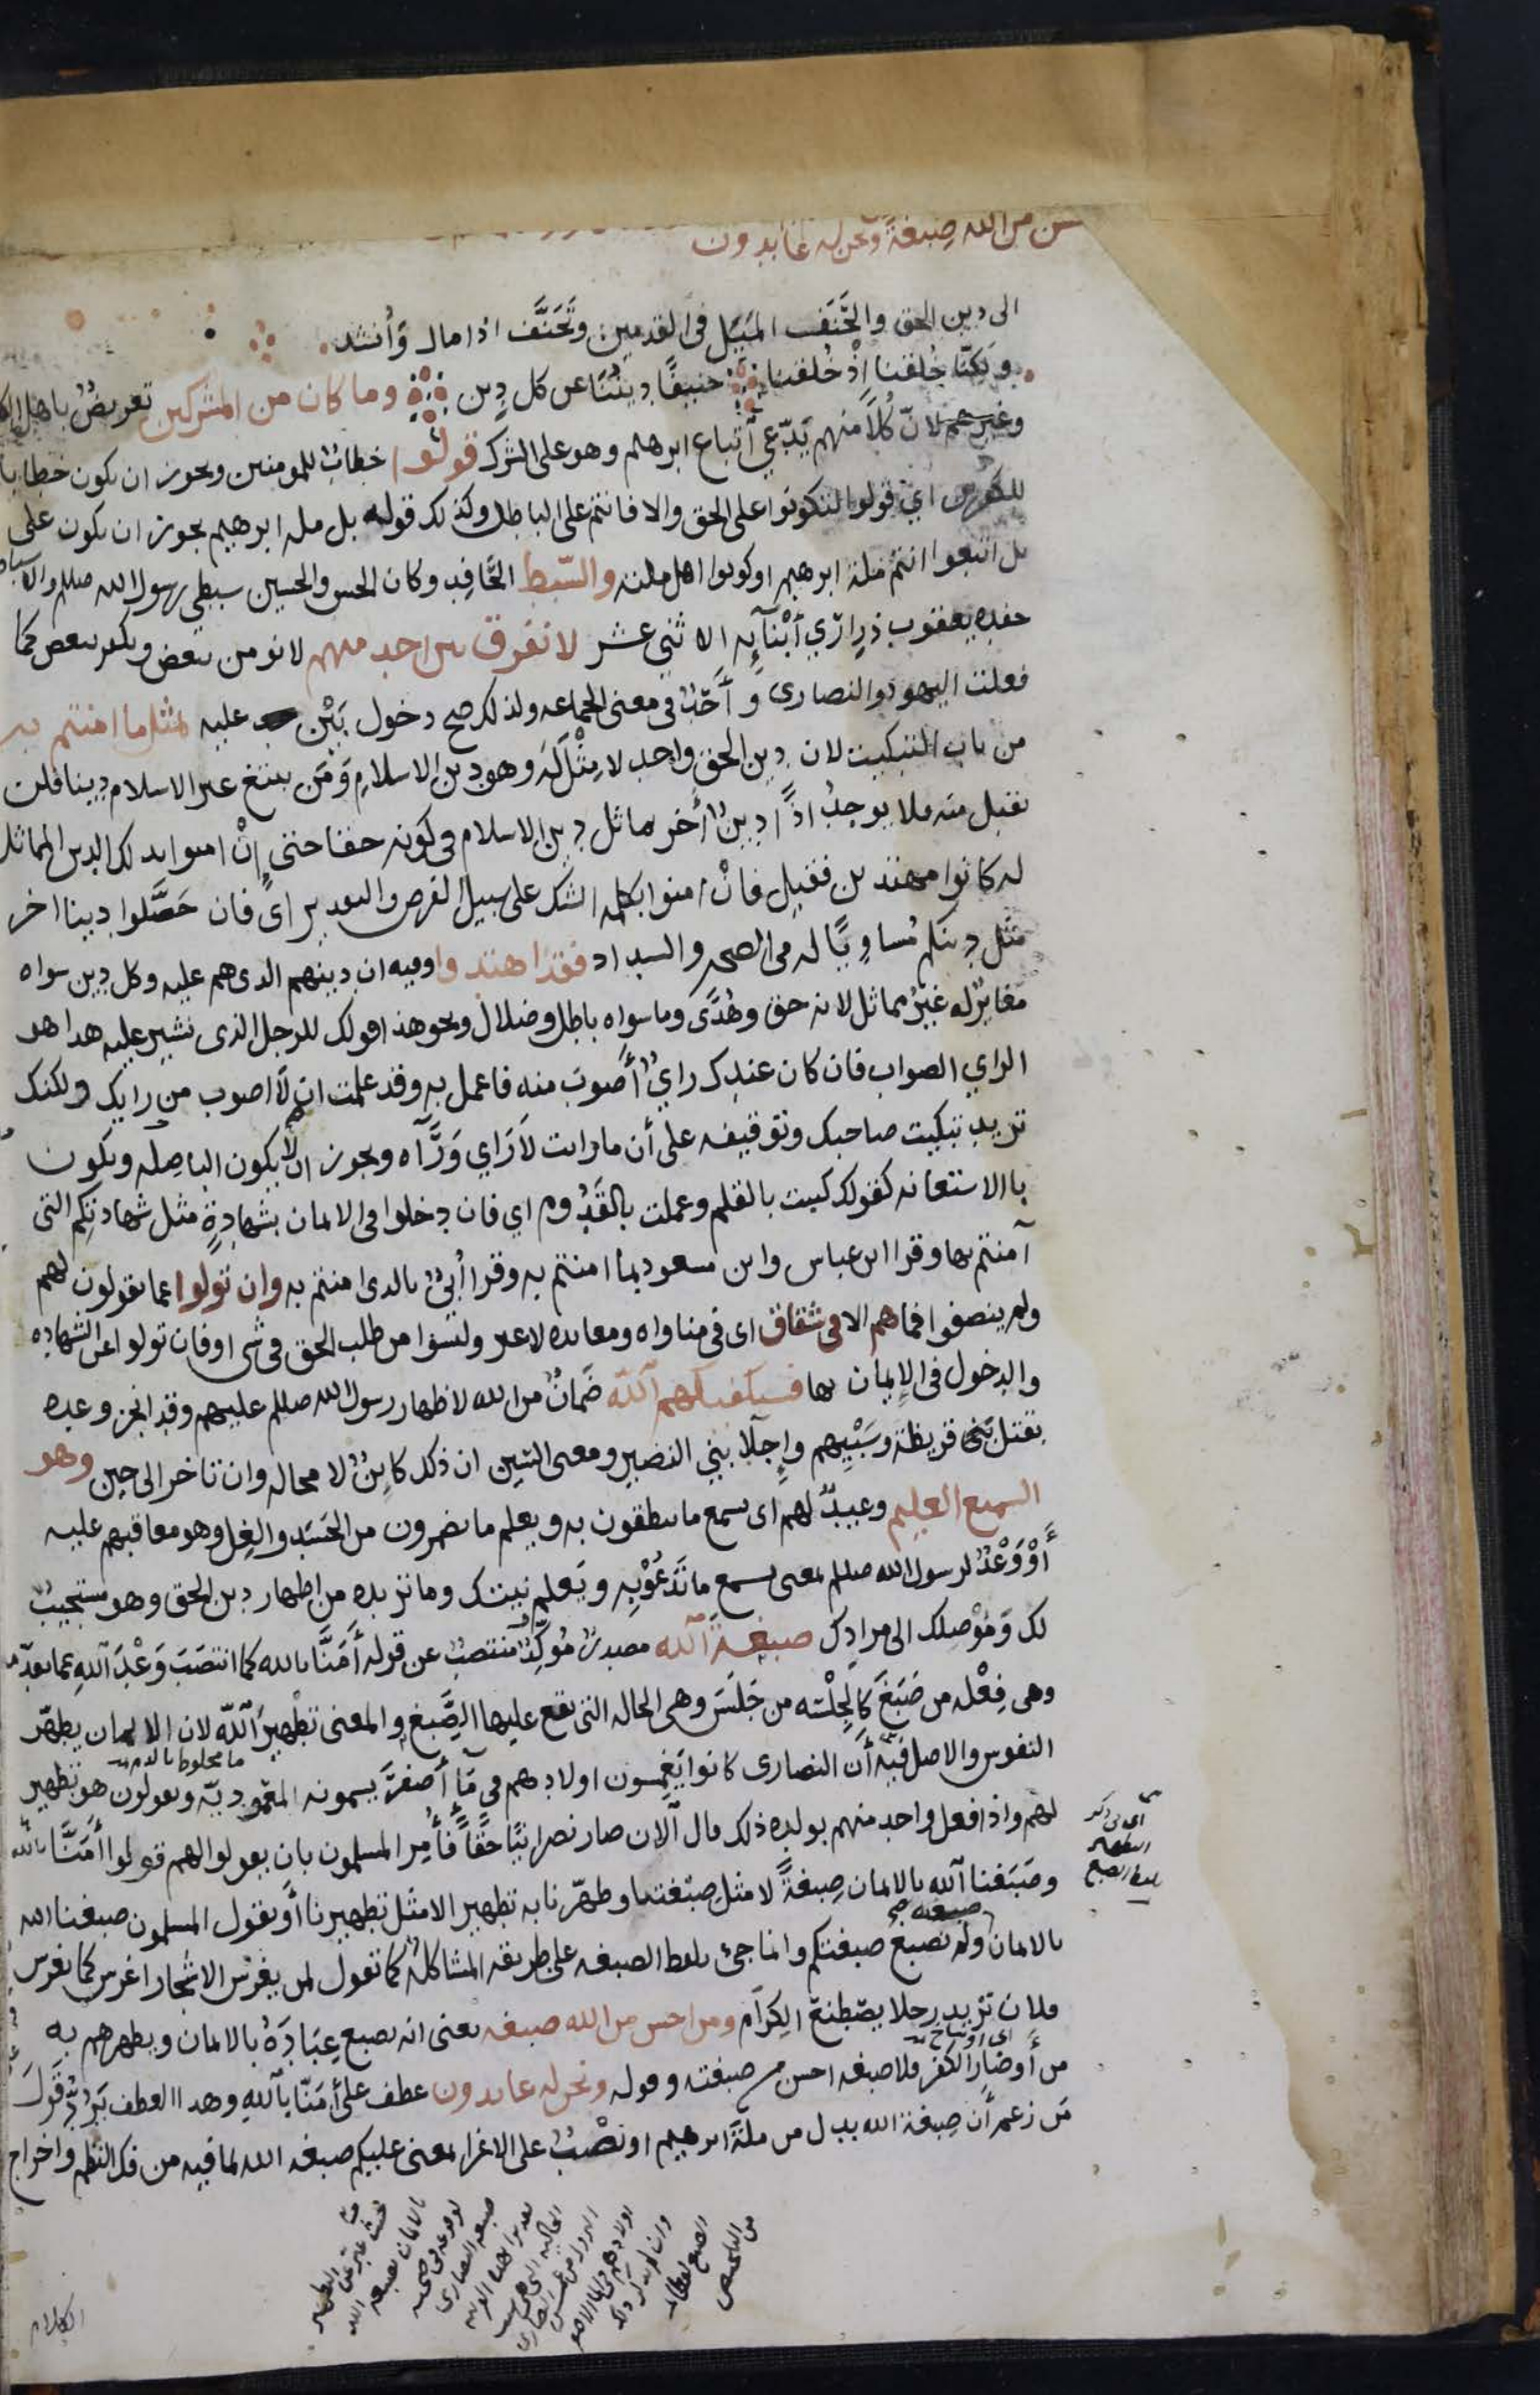 من الله صبغة ونحن له عابدون
الى دين الحق والحَنَف المَيَل في القدمين وتَحَنَّف اذا مال وأنشد
ولكنّا خُلقنا إذْ خُلقنا حنيفًا دينُنَا عن كل دين وما كان من المشركين تعريضٌ باهل
وغيرهم لانّ كُلًّا منهم يَدّعي اتباع ابرهيم وهو على الشرك قولوا خطابٌ للمومنين ويجوز ان يكون خطابا
للكفرين اي قولوا لتكونوا على الحق والا فانتم على الباطل وكذلك قوله بل ملة ابرهيم يجوز ان يكون على
بل اتبعوا انتم ملة ابرهيم او كونوا اهل ملته والسّبط الحَافِد وكان الحسن والحسين سبطي رسول الله صللم والاسباط
حفدة يعقوب ذراري أبْنَآئِه الاثني عشر لا نفرق بين احد منهم لا نومن ببعض ونكفر ببعض كما
فعلت اليهود والنصارى وأحَدٌ في معنى الجماعه ولذلك صح دخول بَيْن عليه بمثل ما امنتم به
من باب التبكيت لان دين الحق واحد لا مِثْلَ لَه وهو دين الاسلامِ وَمَن يبتغ غير الاسلام دينا فلن
نقبل منه فلا يوجدُ اذًا دينٌ أخر يماثل دين الاسلام في كونه حقا حتى إنْ امنوا بذلك الدين المماثل
له كانوا مهتدين فقيل فانْ امنوا بكلمه الشك على سبيل الفرض والتقدير اى فان حَصَّلوا دينا اخر
مثل دينكم مُساويًا له في الصحه والسداد فقد اهتدوا وفيه ان دينهم الذى هم عليه وكل دين سواه
مغايرٌ له غيرُ مماثل لانه حق وهُدًى وما سواه باطل وضلال ونحو هذا قولك للرجل الذى تشير عليه هذا هو
الراي الصواب فان كان عندك رايٌ أصوبَ منه فاعمل به وقد علمت ان لا اصوب من رايك ولكنك
تريد تبكيت صاحبك وتوقيفه على أن ما رايت لا رَاي وَرَآه ويجوز ان لا يكون الباء صله ويكون
باالاستعانه كقولك كتبت بالقلم وعملت بالقَدُوم اي فان دخلوا في الايمان بشهادةٍ مثل شهادتكم التى
آمنتم بها وقرا ابن عباس وابن مسعود بما امنتم به وقرا أُبيٌّ بالذى امنتم به وان تولوا عما تقولون لهم
ولم ينصفوا فما هم الا في شقاق اى في مناواه ومعانده لا غير وليسوا من طلب الحق في شى او فان تولوا عن الشهاده
والدخول في الإيمان بها فسيكفيكهم آلله ضَمانٌ من الله لاظهار رسول الله صللم عليهم وقد انجز وعده
بقتل بني قريظة وسَبْيِهم وإجلآ بني النضير ومعنى السّين ان ذلك كاينٌ لا محاله وان تاخر الى حين وهو
السميع العليم وعيدٌ لهم اى يسمع ما ينطقون به ويعلم ما يضمرون من الحَسَد والغِل وهو معاقبهم عليه
أَوْ وَعْدٌ لرسول الله صللم بمعنى يسمع ما تَدعُوْ بِه ويَعلم نيتك وما تريده من اظهار دين الحق وهو مستجيبٌ
لك وَمُوْصِلك الى مرادك صبغةَ آلله مصدرٌ مُوكِّدٌ منتصبٌ عن قوله أَمَنَّا بالله كما انتصَبَ وَعْدَ آللهِ عما تقدّمه
وهي فِعْله من صَبَغ كالجِلْسَه من جَلَسَ وهى الحاله التى يقع عليها الصَّبغ والمعنى تطهيرَ آلله لان الايمان يطهّر
النفوس والاصل فيه أن النصارى كانوا يَغمِسون اولادهم في مآ أصفرَ يسمونه المعَموديّة ويقولون هو تطهير
لهم واذا فعل واحد منهم بولده ذلك قال آلان صار نصرانيًّا حقًّا فأُمِر المسلمون بان يقولوا لهم قولوا أَمَنَّا بالله
وصَبَغنا آلله بالايمان صِبغةً لا مثل صِبْغتنا وطهّرنا به تطهيرا لا مثل تطهيرنا أو يقول المسلمون صبغنا الله
بالايمان ولم نصبغ صبغتكم وانما جئ بلفظ الصبغه على طريقه المشاكلة كما تقول لمن يغرس الاشجار اغرس كما يغرس
فلان تريد رجلا يصْطنع الكِرآم ومن احسن من الله صبغه يعنى انه يصبغ عِبَادَهُ بالايمان ويطهرهم به
من أَوضار الكفر فلا صبغه احسن من صبغته وقوله ونحن له عابدون عطف على أَمَنّا بآللهِ وهذا العطف يَرُدّ قَولَ
مَن زعم أن صِبغة الله بدل من ملّةَ ابرهيم او نَصْبٌ على الاغرآ بمعنى عليكم صبغه الله لما فيه من فك النظم واخراج